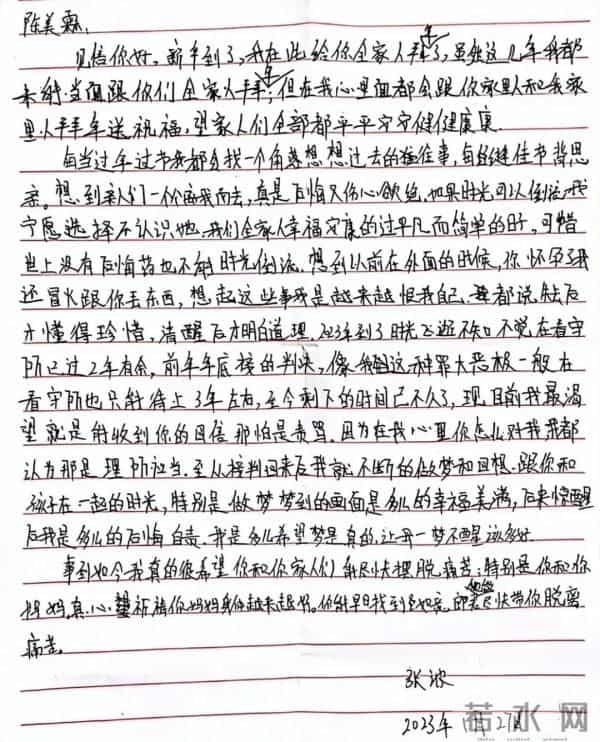 陈美霖:
见信你好。新年到了,我在此给你全家人拜年了,虽然这几年我都
未能当面跟你们全家人拜年,但在我心里面都会跟你家里人和我家
里人拜年送祝福,望家人们全部都平平安安健健康康
每当过年过节我都会找一个角落想想过去的往事,每逢佳节倍思
亲。想到亲人们一个个离我而去,真是后悔又伤心欲绝,如果时光可以倒流,我
宁愿选择不认识她,我们全家人幸福安康的过平凡而简单的日子,可惜
世上没有后悔药也不能时光倒流。想到以前在外面的时候,你怀孕了我
还冒火跟你丢东西,想起这些事我是越来越恨我自己,都说失去后
才懂得珍惜,清醒后才明白道理。2023年到了时光飞逝不知不觉在看守
所已过2年有余,前年年底接的判决,像我这种罪大恶极一般在
看守所也只能待上3年左右,至今剩下的时间已不久了,现目前我最渴
望就是能收到你的回信那怕是责骂。因为在我心里你怎么对我,我都
认为那是理所应当。至从接判回来后我就不断的做梦和回想跟你和
孩子在一起的时光,特别是做梦梦到的画面是多么的幸福美满,后来惊醒
后我是多么的后悔自责。我是多么希望梦是真的,让我一梦不醒该多好
事到如今我真的很希望你和你家人们能尽快摆脱痛苦,特别是你和你
妈妈。真心祈福你妈妈身体越来越好。你能早日找到 尽快带你脱离
痛苦。
张波
2023年1月27日
若水网